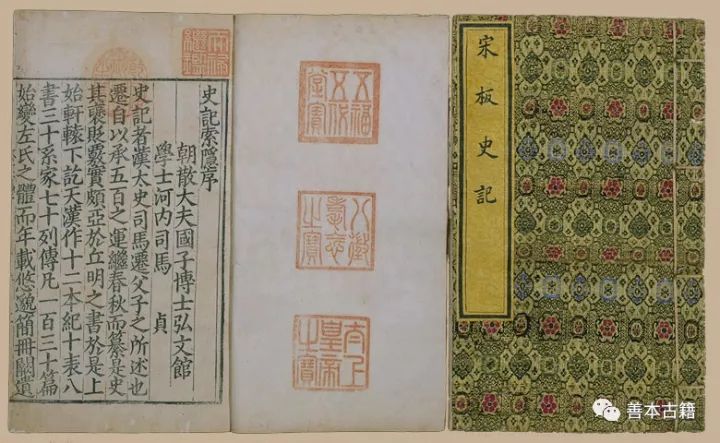 宋板史記
五福
五代
堂寶
八徵
耄念
之寶
太上
皇帝
之寶
天祿
繼鑑
史記索隱序
朝散大夫國子博士弘文館
學士河內司馬 貞
史記者漢太史司馬遷父子之所述也
遷自以承五百之運繼春秋而纂是史
其襃貶覈實頗亞於丘明之書於是上
始軒轅下訖天漢作十二本紀十表八
書三十系家七十列傳凡一百三十篇
始變左氏之體而年載悠邈簡冊闕遺
善本古籍